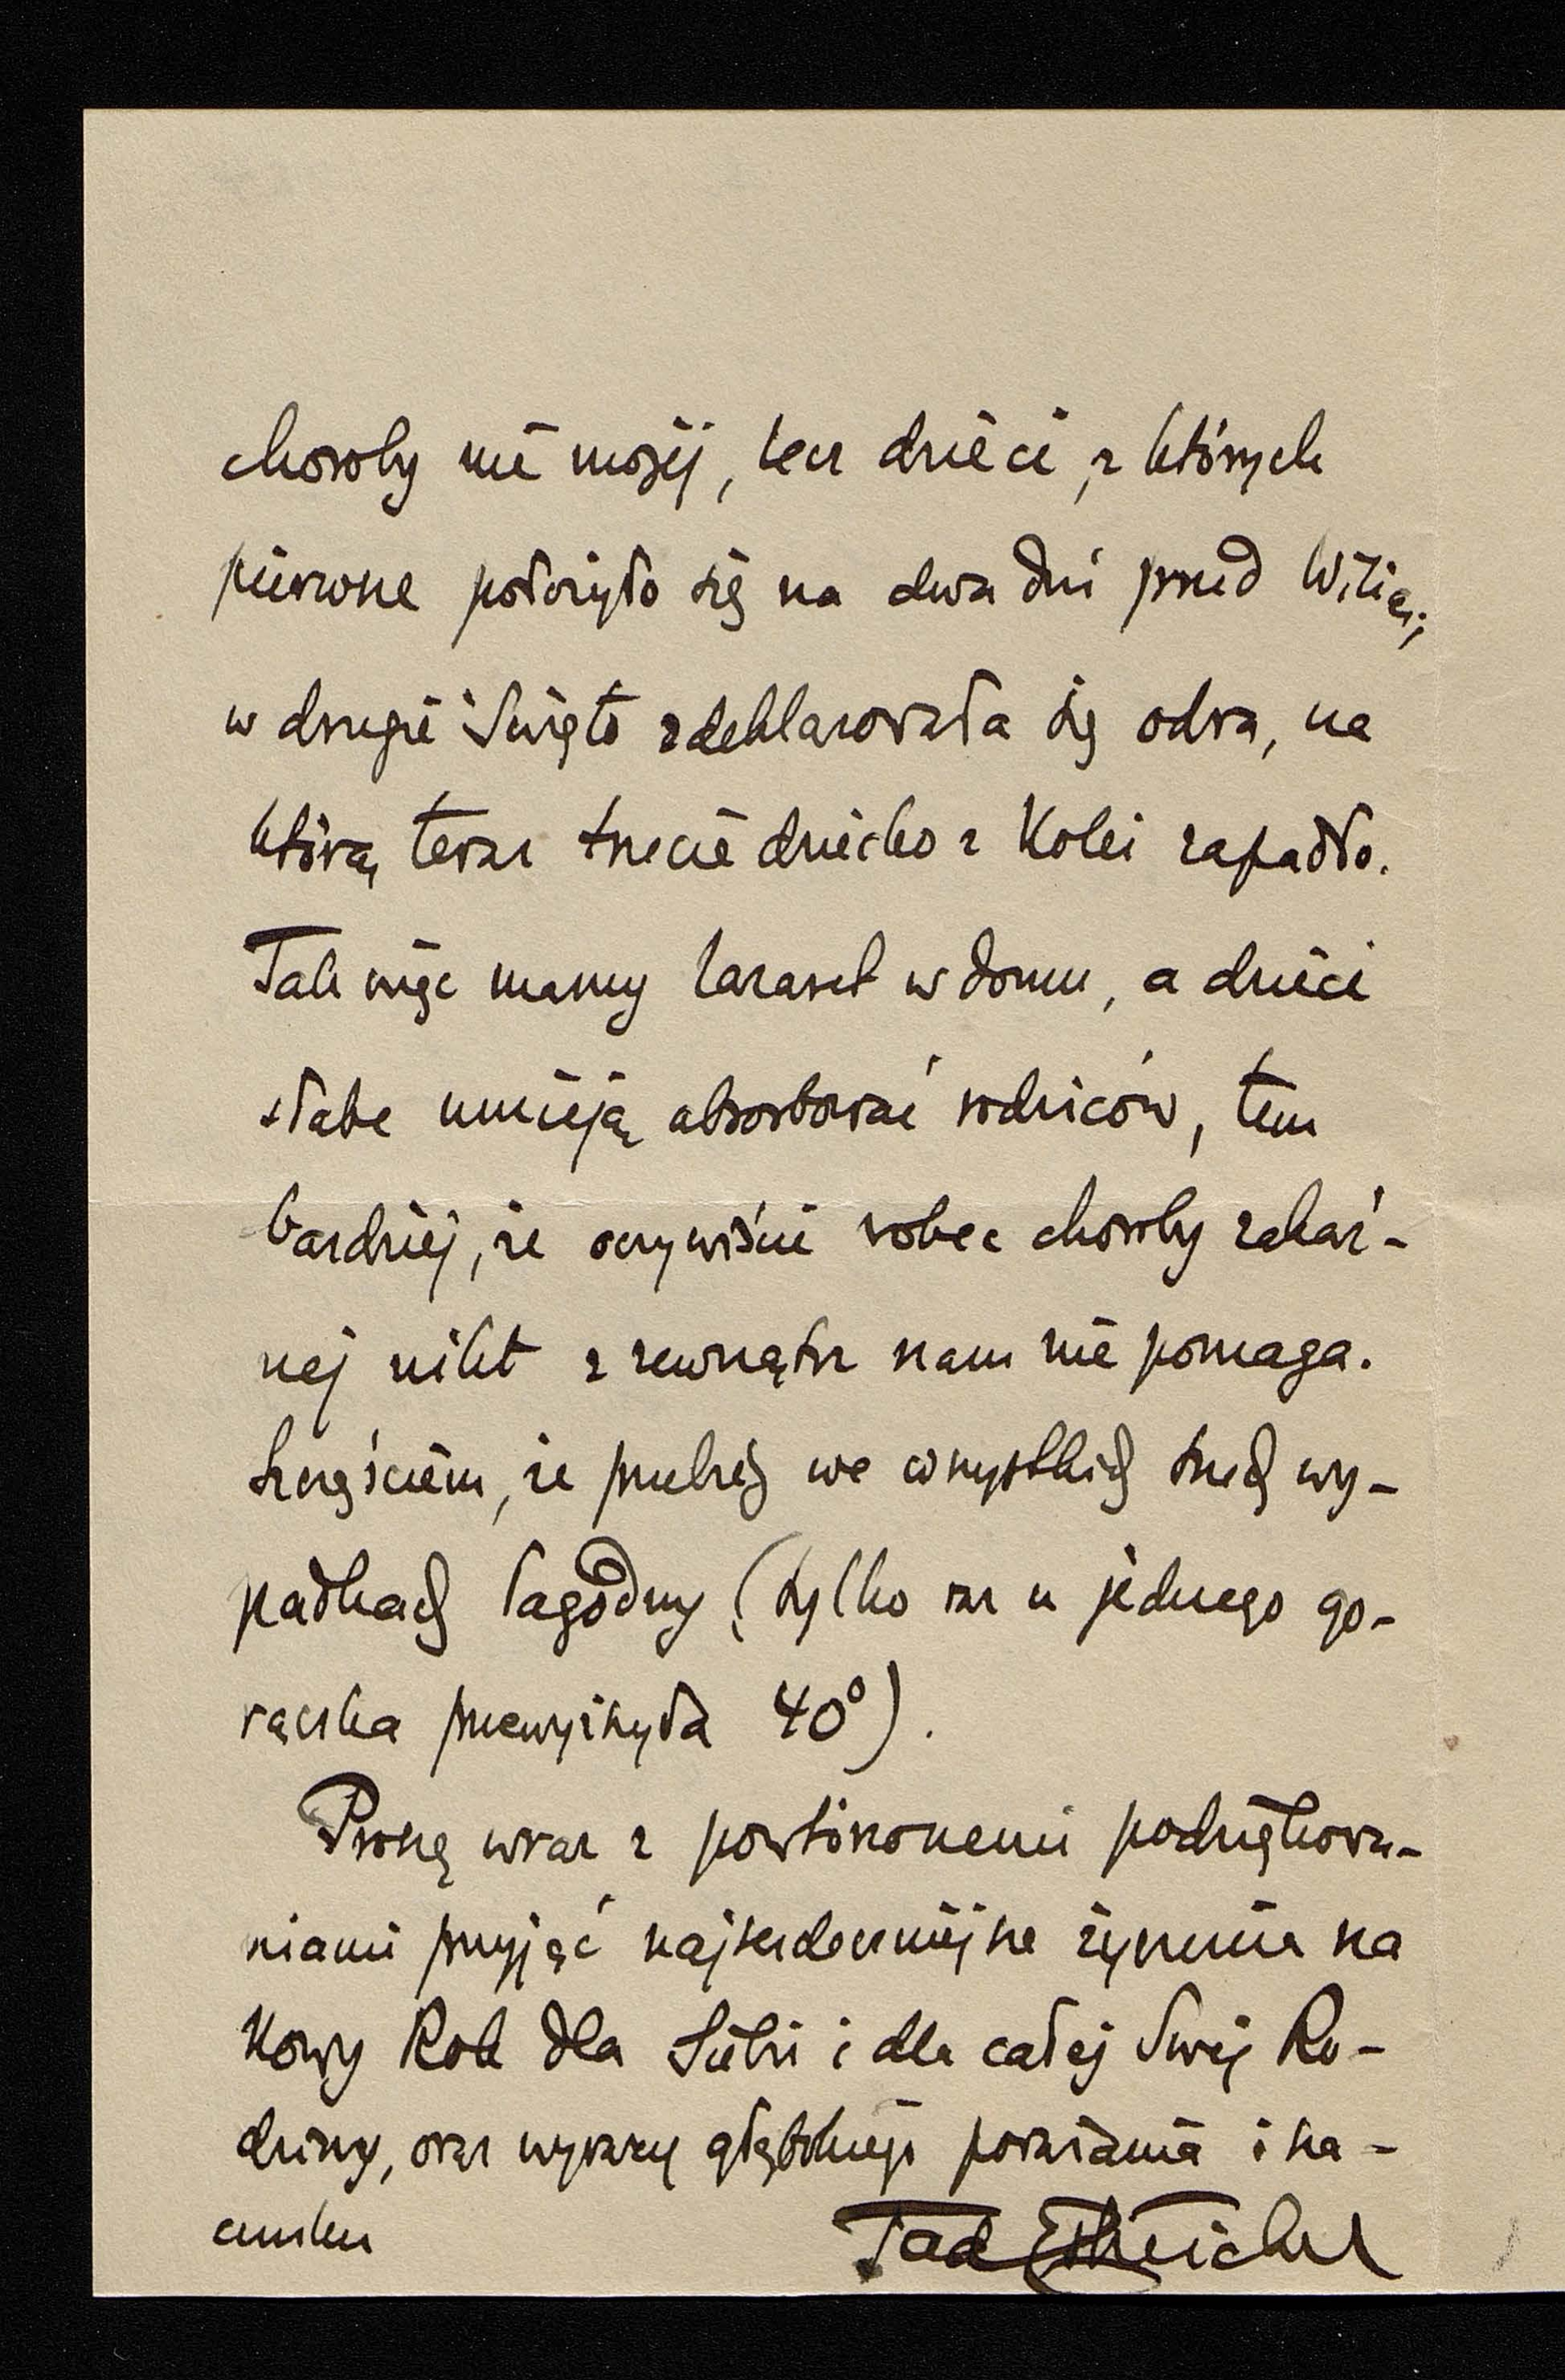 choroby nie mojéj, lecz dzieci, z których
pierwsze położyło się na dwa dni przed Wilią;
w drugie święto zdeklarowała się odra, na
którą teraz trzecie dziecko z kolei zapadło.
Tak więc mamy lazaret w domu, a dzieci
słabe umieją absorbować rodziców, tem
bardziéj, że oczywiście wobec choroby zakaź-
nej nikt z zewnątrz nam nie pomaga.
Szczęściem, że przebieg we wszystkich trzech wy-
padkach łagodny (tylko raz u jednego go-
rączka przewyższyła 40°).
Proszę wraz z powtórzonemi podziękowa-
niami przyjąć najserdeczniejsze życzenia na
Nowy Rok dla Siebie i dla całej Swéj Ro-
dziny, oraz wyrazy głębokiego poważania i sza-
cunku
Tad Estreicher